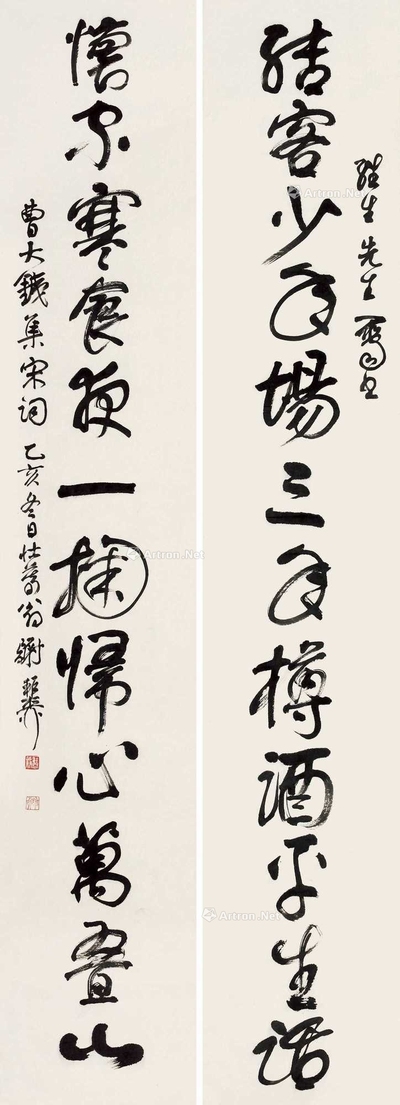 先生
結客少年場三年樽酒平生話
懷家寒食夜一掬歸心萬疊山
曹大鐵集宋詞 乙亥冬日壯暮翁謝稚柳
Artron.Net
Artron.Net
Artron.Net